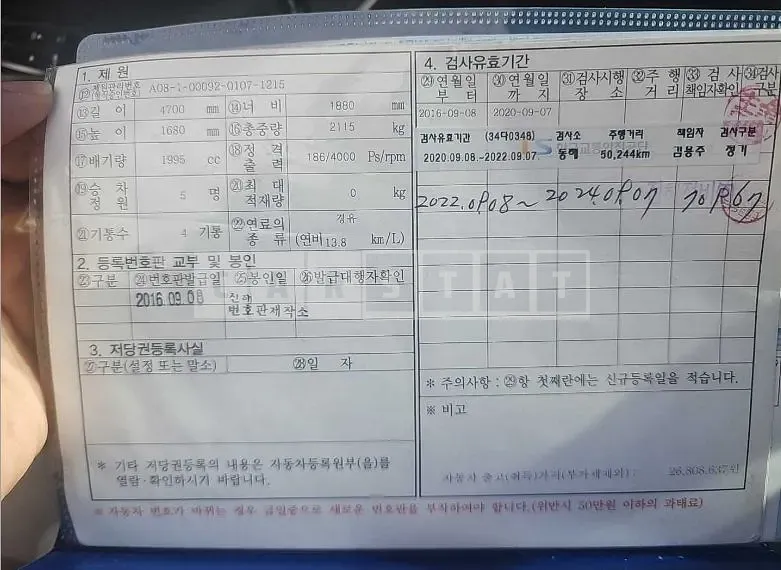 1. 제 원
⑫제원관리번호 (형식승인번호) A08-1-00092-0107-1215
⑬길 이 4700 mm ⑭너 비 1880 mm
⑮높 이 1680 mm ⑯총중량 2115 kg
⑰배기량 1995 cc ⑱정 격 출 력 186/4000 Ps/rpm
⑲승 차 정 원 5 명 ⑳최 대 적재량 0 kg
㉑기통수 4 기통 ㉒연료의 종 류 경유 (연비 13.8 km/L)
2. 등록번호판 교부 및 봉인
㉓구분 ㉔번호판발급일 ㉕봉인일 ㉖발급대행자확인
2016.09.08
번호판제작소
3. 저당권등록사실
㉗구분(설정 또는 말소) ㉘일 자
※ 기타 저당권등록의 내용은 자동차등록원부(을)를
열람·확인하시기 바랍니다.
4. 검사유효기간
㉙연월일 부 터 ㉚연월일 까 지 ㉛검사시행 장 소 ㉜주 행 거 리 ㉝검 사 책임자확인 ㉞검사 구분
2016-09-08 2020-09-07
검사유효기간 (34다0348) 검사소 주행거리 책임자 검사구분
2020.09.08.-2022.09.07. 동해 50,244km 김용주 정기
2022.09.08~ 2024.09.07
※ 주의사항 : ㉙항 첫째란에는 신규등록일을 적습니다.
※ 비고
자동차 출고(취득)가격(부가세제외) : 26,808,637원
※ 자동차 번호가 바뀌는 경우 금일중으로 새로운 번호판을 부착하여야 합니다.(위반시 50만원 이하의 과태료)
CARSTAT